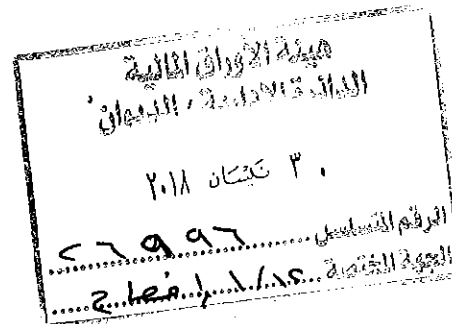 هيئة الأوراق المالية
الدائرة الإدارية / الديوان
٣٠ نيسان ٢٠١٨
الرقم التسلسلي ٢٦٩٩٦
الجهة المختصة ١٢/١/١ إفصاح